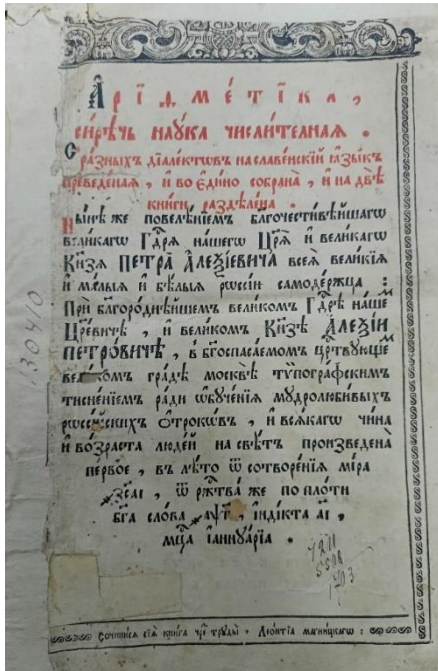 А҆рїѳме́тїка,
си́рѣчь наꙋ́ка числи́телнаѧ.
С̾ ра́зныхъ дїале́ктѡвъ на славе́нскїй ꙗ҆зы́къ
преведе́наѧ, и҆ во є҆ди́но собрана̀, и҆ на двѣ̀
кни́ги раздѣле́на.
Ны́нѣ же повелѣ́нїемъ благочести́вѣйшагѡ
вели́кагѡ Гдⷭ҇рѧ на́шегѡ Цр҃ѧ̀ и҆ вели́кагѡ
Кнѧ҃зѧ ПЕТРА̀ АЛЕѮІ́ЕВИЧА всеѧ̀ вели́кїѧ
и҆ ма́лыѧ и҆ бѣ́лыѧ рѡссі́и самоде́ржца:
Прѝ благоро́днѣйшемъ вели́комъ Гдⷭ҇рѣ на́шемъ
Цр҃е́вичѣ, и҆ вели́комъ Кнѧ҃зѣ АЛЕѮІ́И
ПЕТРО́ВИЧѢ, в̾ бг҃оспаса́емомъ црⷭ҇твꙋющемъ
вели́комъ гра́дѣ москвѣ̀ тѷпогра́фскимъ
тисне́нїемъ ра́ди ѡ҆бꙋче́нїѧ мꙋдролюби́выхъ
рѡссі́йскихъ ѻ҆́трокѡвъ, и҆ всѧ́кагѡ чи́на
и҆ во́зраста люде́й на свѣ́тъ произведена̀
пе́рвое, въ лѣ́то ѿ сотворе́нїѧ мі́ра
҂зсаі, ѿ ржⷭ҇тва̀ же по пло́ти
бг҃а сло́ва ҂аѱг, і҆ндїкта аі,
мцⷭ҇а і҆аннꙋа́рїа.
Сочини́сѧ сїѧ̀ кни́га чре́з трꙋды̀ Леѻ́нтїа магни́цкагѡ:
130410
7211
5508
1703